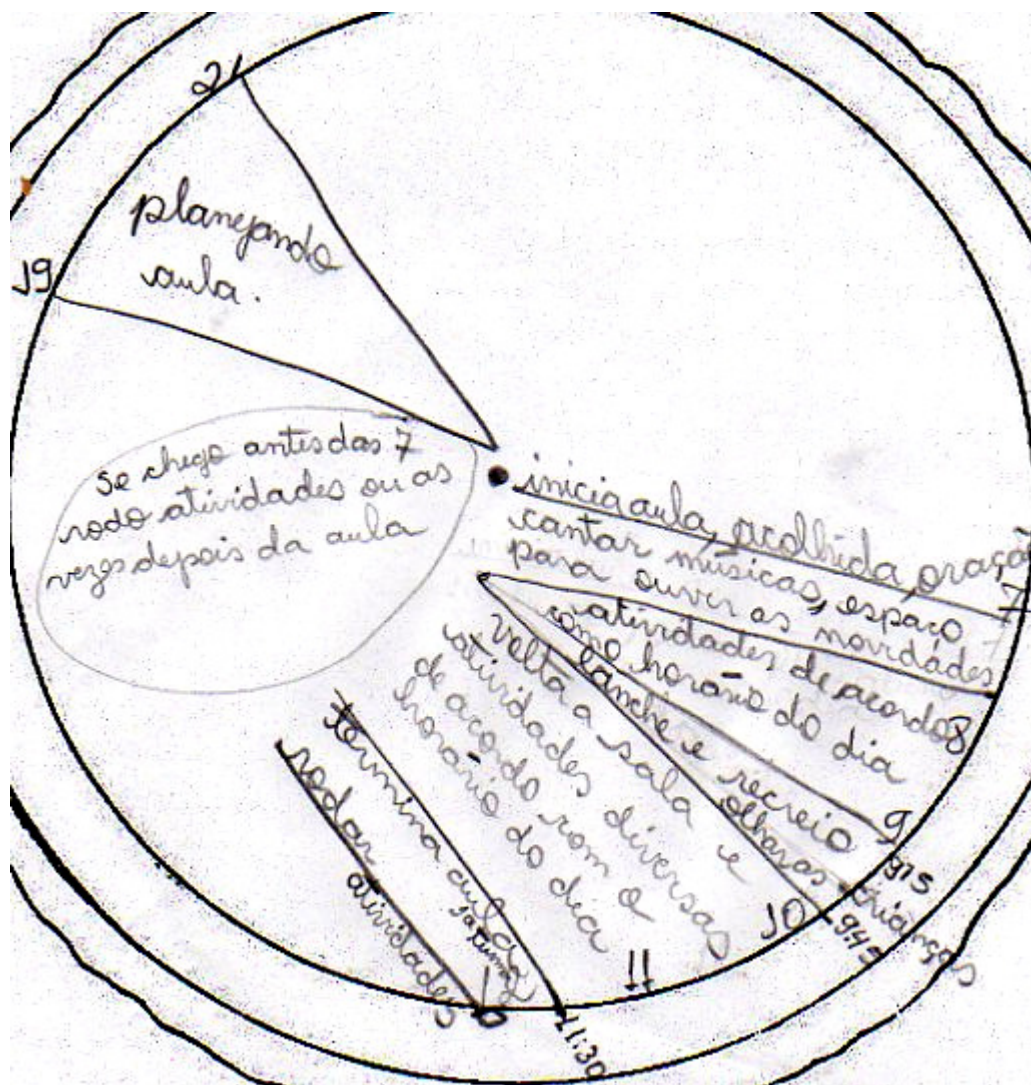 21
planejando
aula.
19
Se chego antes das 7
rodo atividades ou as
vezes depois da aula
inicia aula, acolhida, oração
7
cantar músicas, espaço
para ouvir as novidades
8
atividades de acordo
com o horário do dia
9
915
lanche e recreio
olhar as crianças
945
10
volta a sala e
atividades diversas
de acordo com o
horário do dia
11
11:30
termina aula
1a turma
rodar
atividades